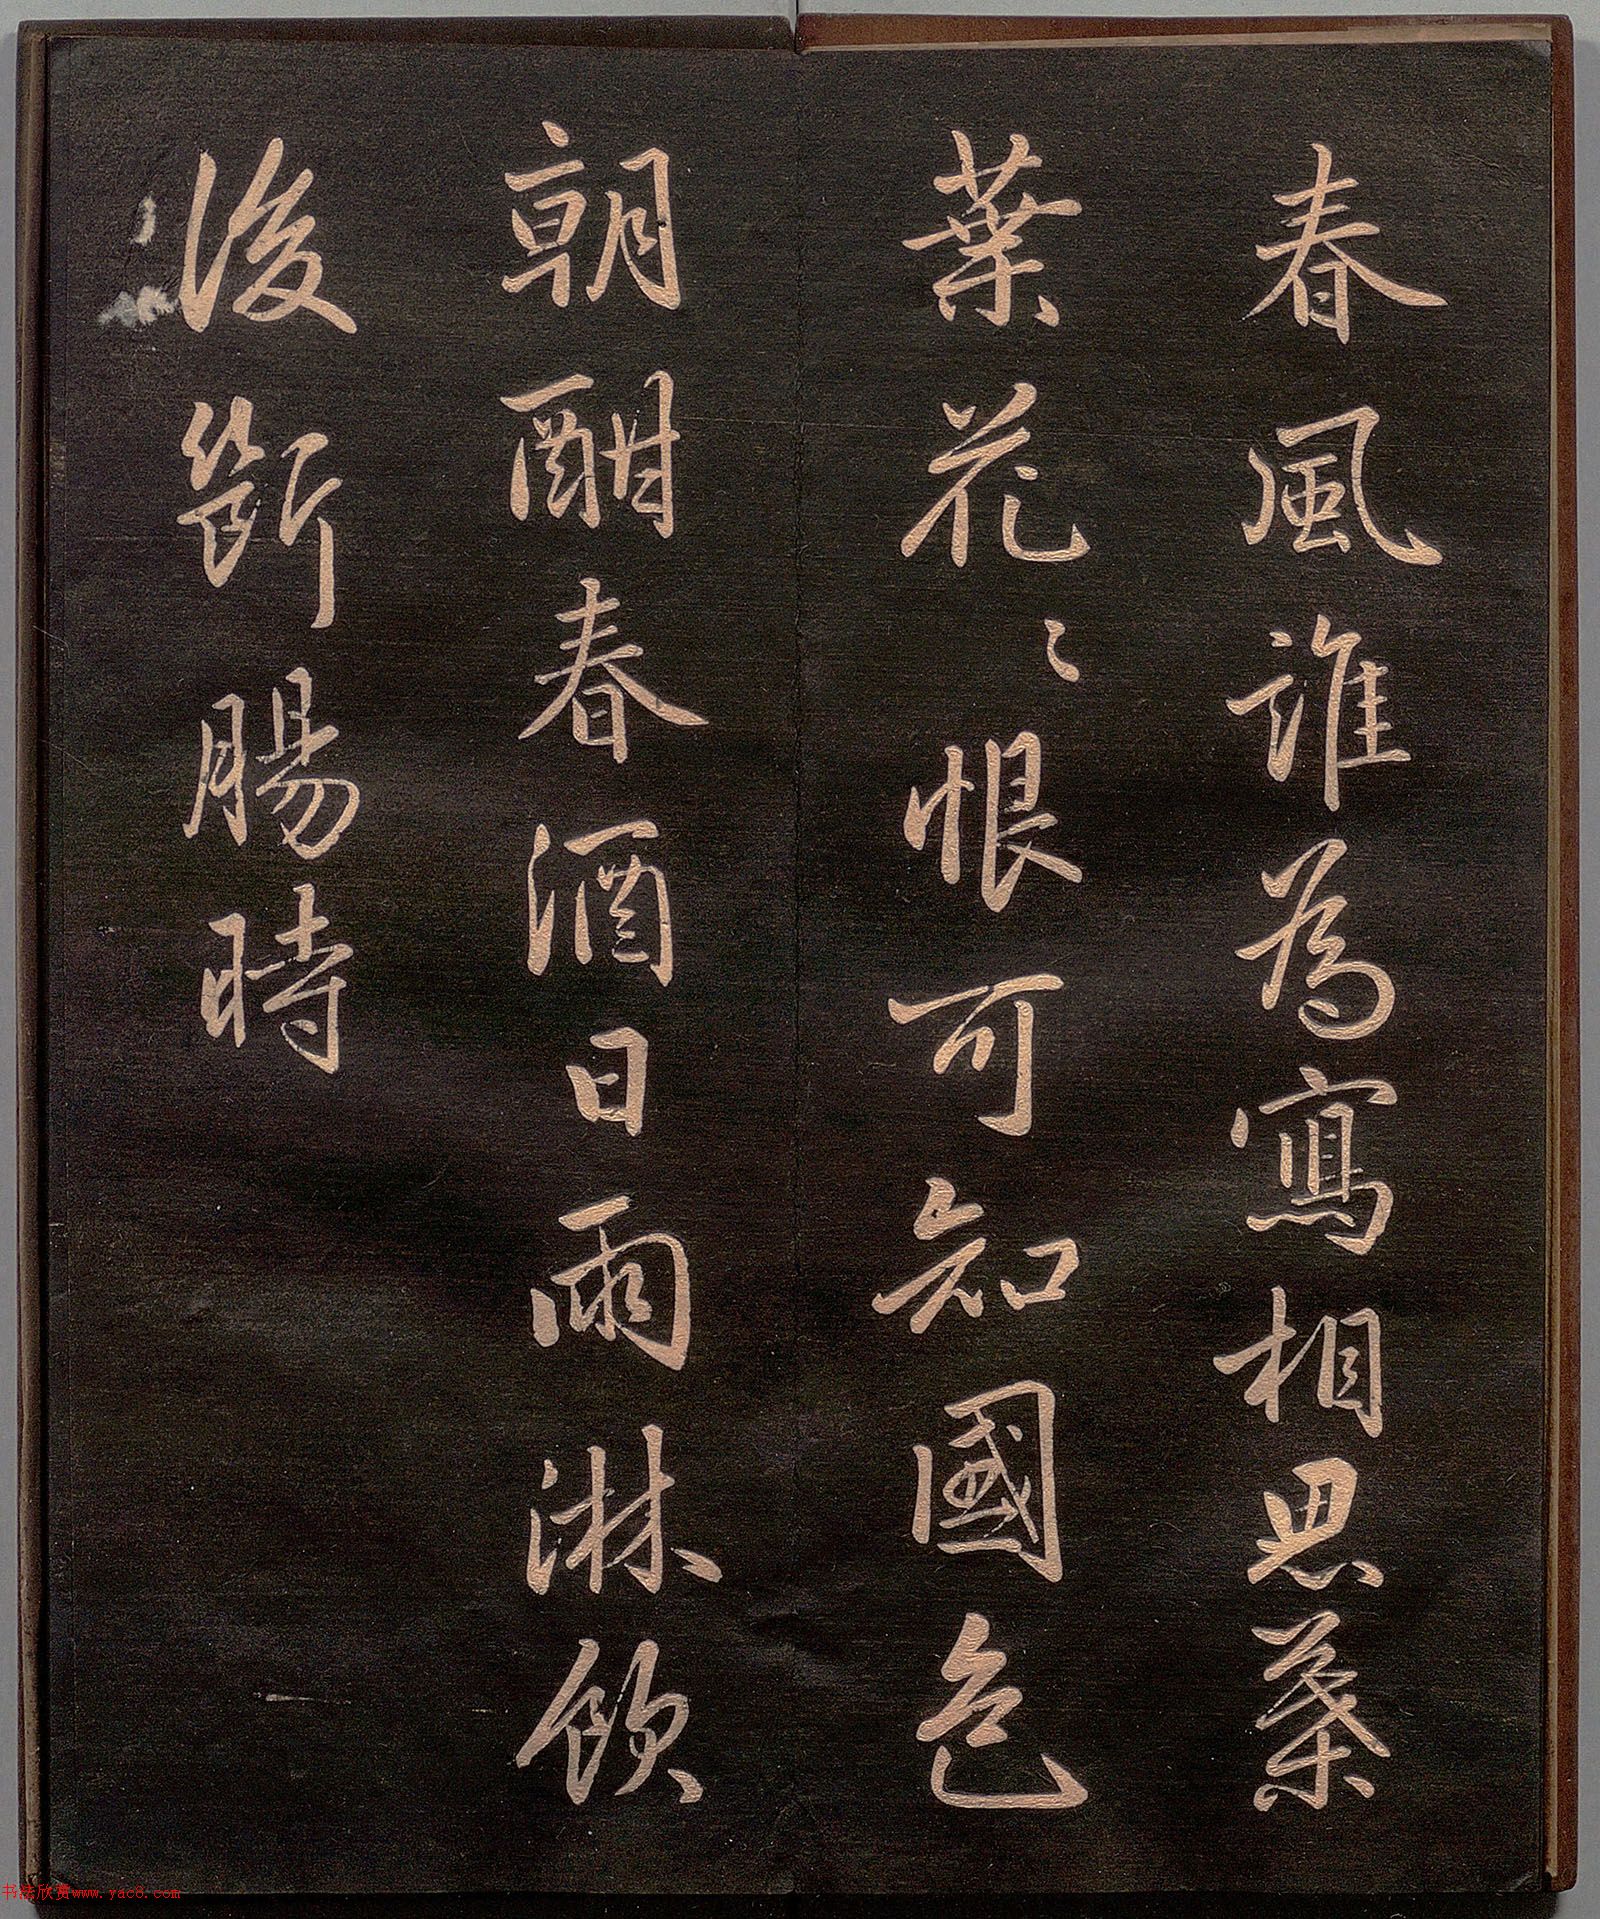 春風誰為寫相思葉
葉花〻恨可知國色
朝酣春酒日雨淋飲
後斷腸時
书法欣赏www.yac8.com